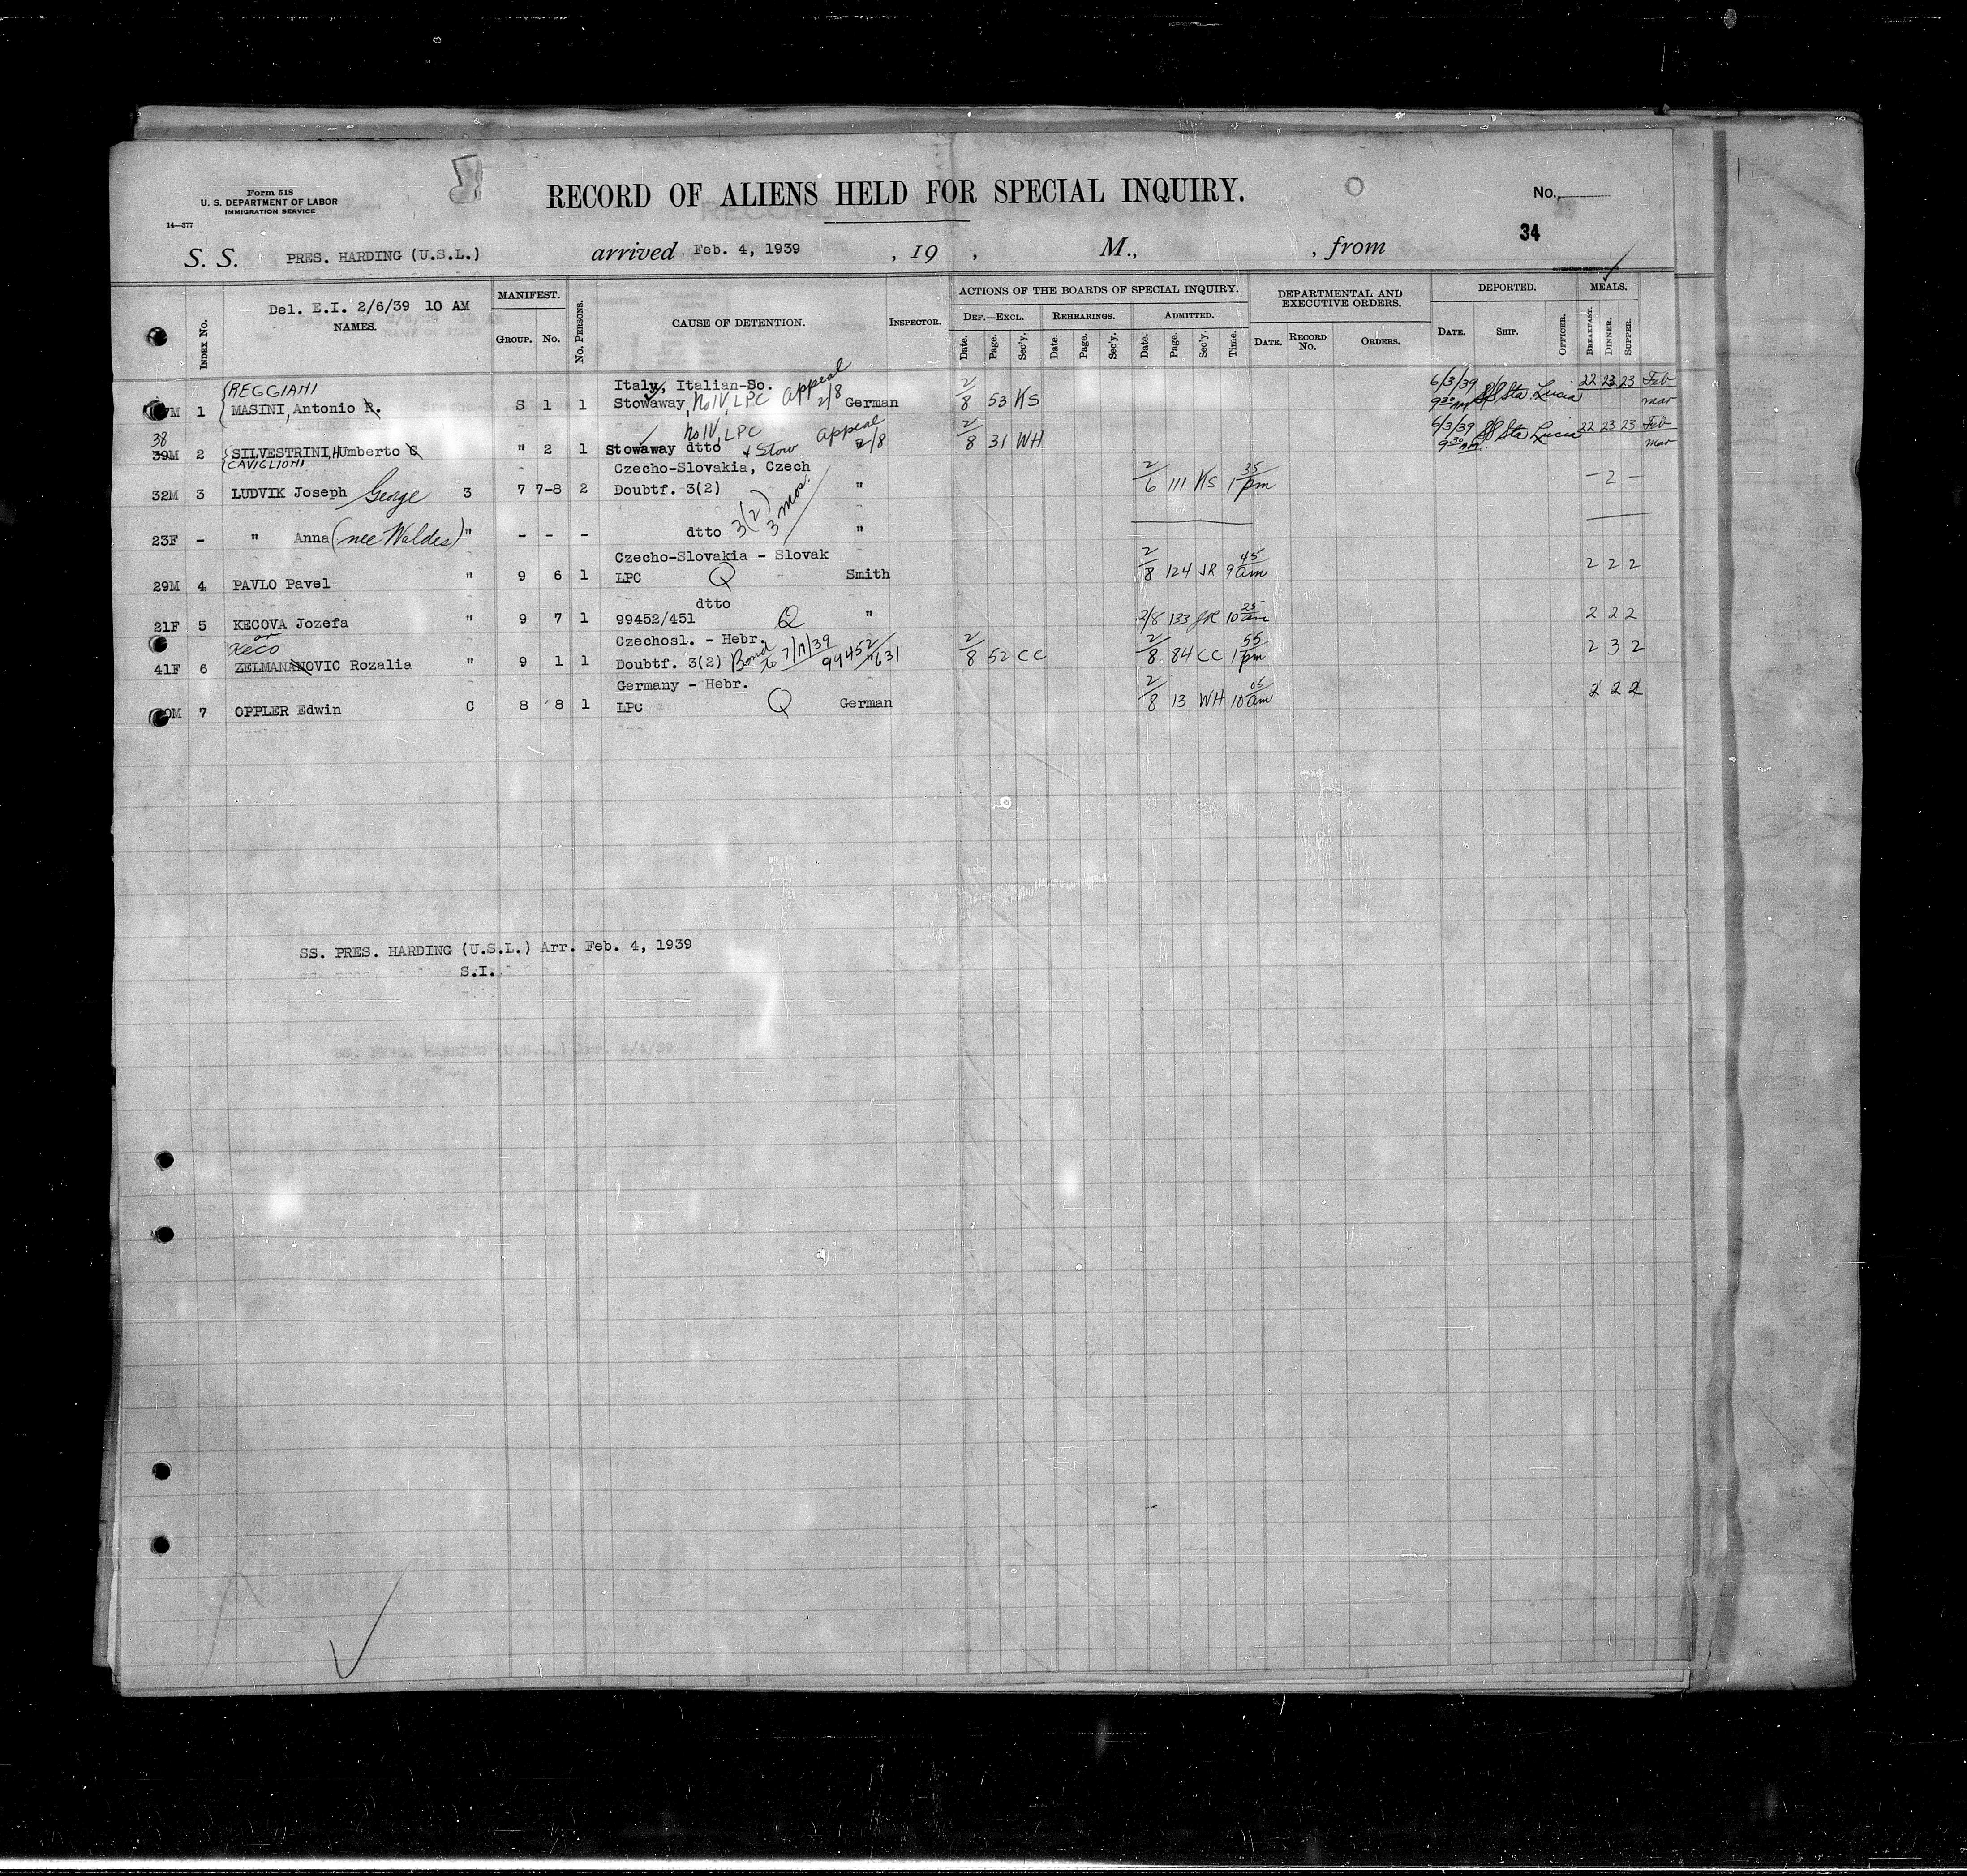 Form 518
U. S. DEPARTMENT OF LABOR
IMMIGRATION SERVICE
14—377
RECORD OF ALIENS HELD FOR SPECIAL INQUIRY.
No.
34
S. S. PRES. HARDING (U.S.L.) arrived Feb. 4, 1939 , 19 , M., , from
Del. E.I. 2/6/39 10 AM
INDEX No. NAMES. MANIFEST. GROUP. No. No. PERSONS. CAUSE OF DETENTION. INSPECTOR.
ACTIONS OF THE BOARDS OF SPECIAL INQUIRY. DEPARTMENTAL AND EXECUTIVE ORDERS. DEPORTED. MEALS.
DEF.—EXCL. REHEARINGS. ADMITTED.
Date. Page. Sec'y. Date. Page. Sec'y. Date. Page. Sec'y. Time. DATE. RECORD No. ORDERS. DATE. SHIP. OFFICER. BREAKFAST. DINNER. SUPPER.
REGGIANI Italy, Italian-So. Appeal
M 1 MASINI, Antonio R. S 1 1 Stowaway, No IV, LPC 2/8 German 2/8 53 KS 6/3/39 9 30 AM SS Sta. Lucia 22 23 23 Feb mar
38 No IV, LPC Appeal
39M 2 SILVESTRINI, Humberto C " 2 1 Stowaway dtto & Stow 2/8 2/8 31 WH 6/3/39 9 30 AM SS Sta Lucia 22 23 23 Feb mar
CAVIGLIONI Czecho-Slovakia, Czech
32M 3 LUDVIK Joseph George 3 7 7-8 2 Doubtf. 3(2) " 2/6 111 KS 1 35 pm — 2 —
23F - " Anna (nee Waldes) " - - - dtto 3(2) 3 mos. "
Czecho-Slovakia - Slovak
29M 4 PAVLO Pavel " 9 6 1 LPC Q Smith 2/8 124 JR 9 45 am 2 2 2
dtto
21F 5 KECOVA Jozefa " 9 7 1 99452/451 Q " 2/8 133 JR 10 25 am 2 2 2
or Keco Czechosl. - Hebr.
41F 6 ZELMANANOVIC Rozalia " 9 1 1 Doubtf. 3(2) Bond to 7/17/39 99452/631 2/8 52 CC 2/8 84 CC 1 55 pm 2 3 2
Germany - Hebr.
0M 7 OPPLER Edwin C 8 8 1 LPC Q German 2/8 13 WH 10 05 am 2 2 2
SS. PRES. HARDING (U.S.L.) Arr. Feb. 4, 1939
S.I.